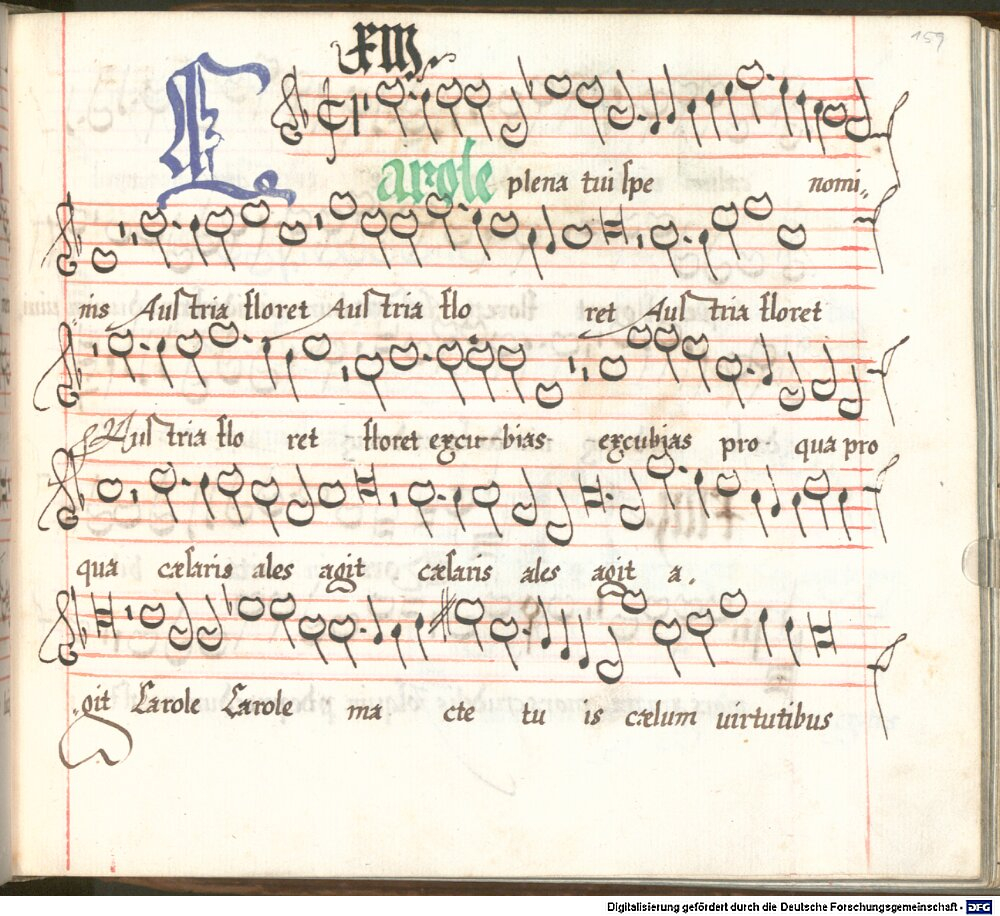 159
XIII
Carole plena tui spe nomi„
nis Austria floret Austria flo ret Austria floret
Austria flo ret floret excu-bias excubias pro qua pro
qua cæsaris ales agit cæsaris ales agit a.
git Carole Carole ma cte tu is cælum uirtutibus
Digitalisierung gefördert durch die Deutsche Forschungsgemeinschaft - DFG